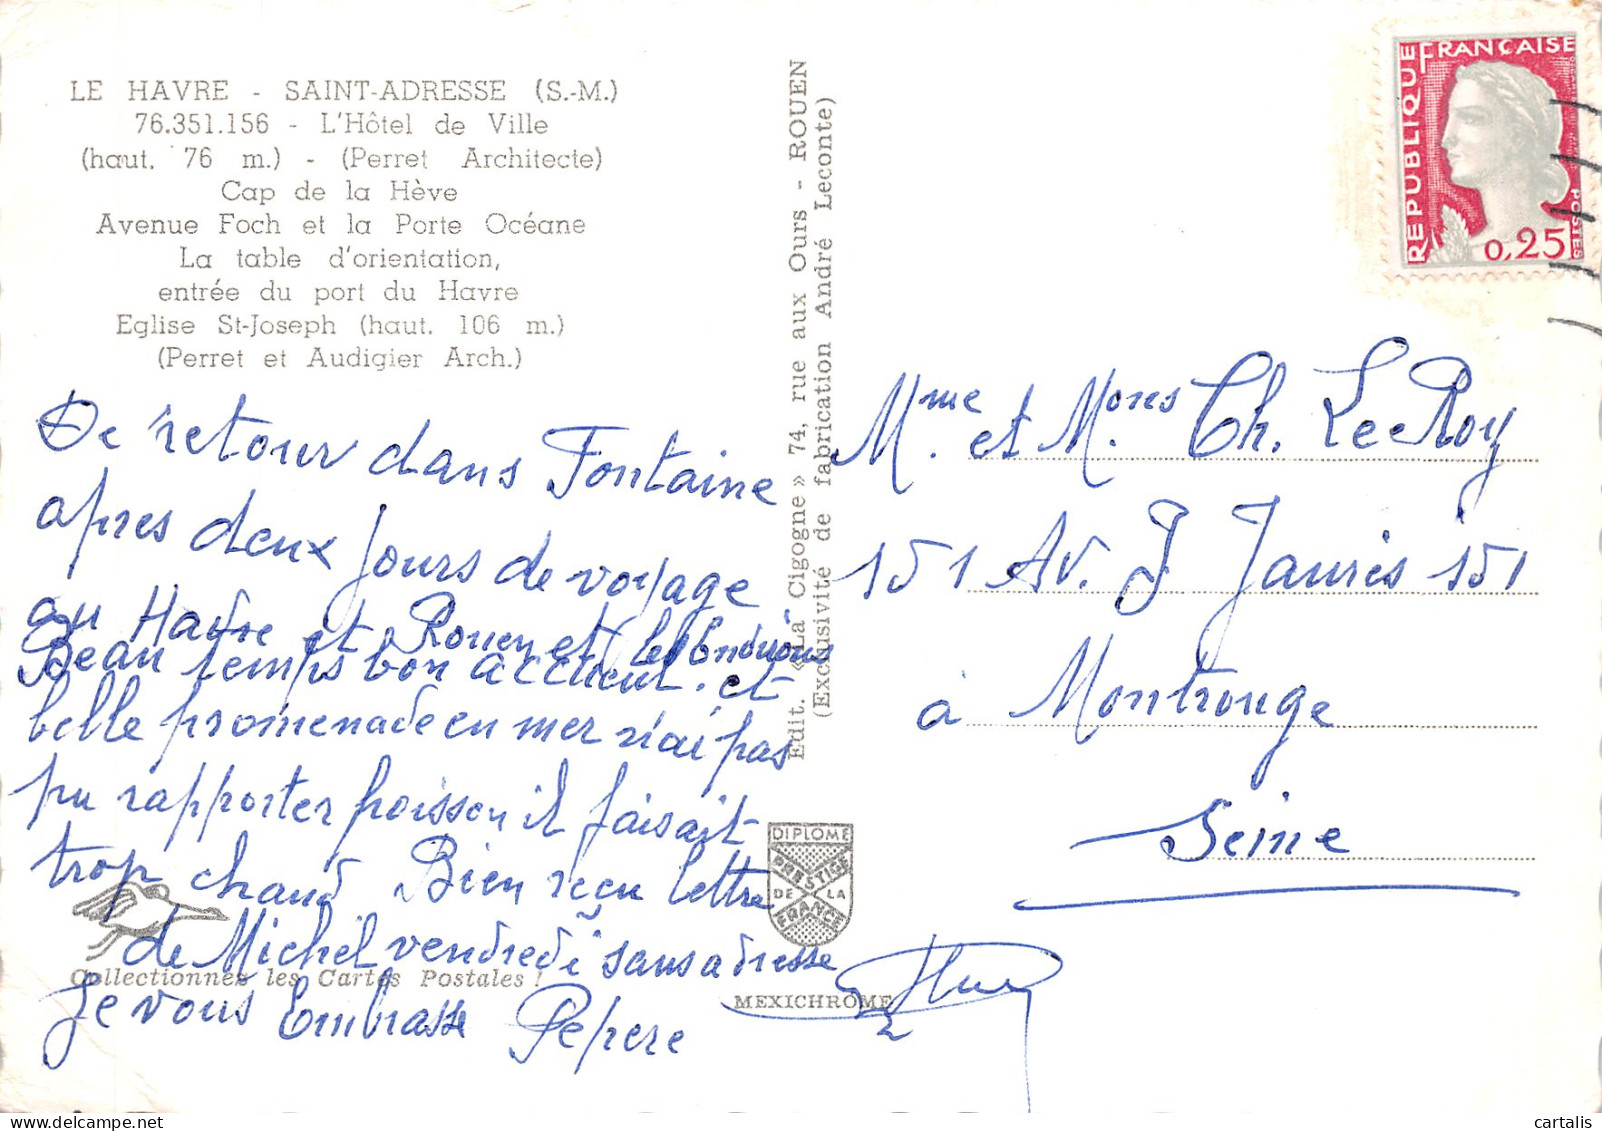 LE HAVRE - SAINT-ADRESSE (S.-M.)
76.351.156 - L'Hôtel de Ville
(haut. 76 m.) - (Perret Architecte)
Cap de la Hève
Avenue Foch et la Porte Océane
La table d'orientation,
entrée du port du Havre
Eglise St-Joseph (haut. 106 m.)
(Perret et Audigier Arch.)
De retour dans Fontaine
apres deux jours de voyage
au Havre et Rouen et
Beau temps bon accueil. et
belle promenade en mer n'ai pas
pu rapporter poisson il faisait
trop chaud Bien reçu lettre
de Michel vendredi sans adresse
je vous Embrasse Pepere
Collectionnez les Cartes Postales !
Edit. «La Cigogne» 74, rue aux Ours - ROUEN
(Exclusivité de fabrication André Leconte)
DIPLOME
PRESTIGE
DE LA
FRANCE
MEXICHROME
REPUBLIQUE FRANÇAISE
POSTES
0,25
Mme. et M.ons Ch. LeRoy
151 Av. J Jaurès 151
à Montrouge
Seine
cartalis
delcampe.net